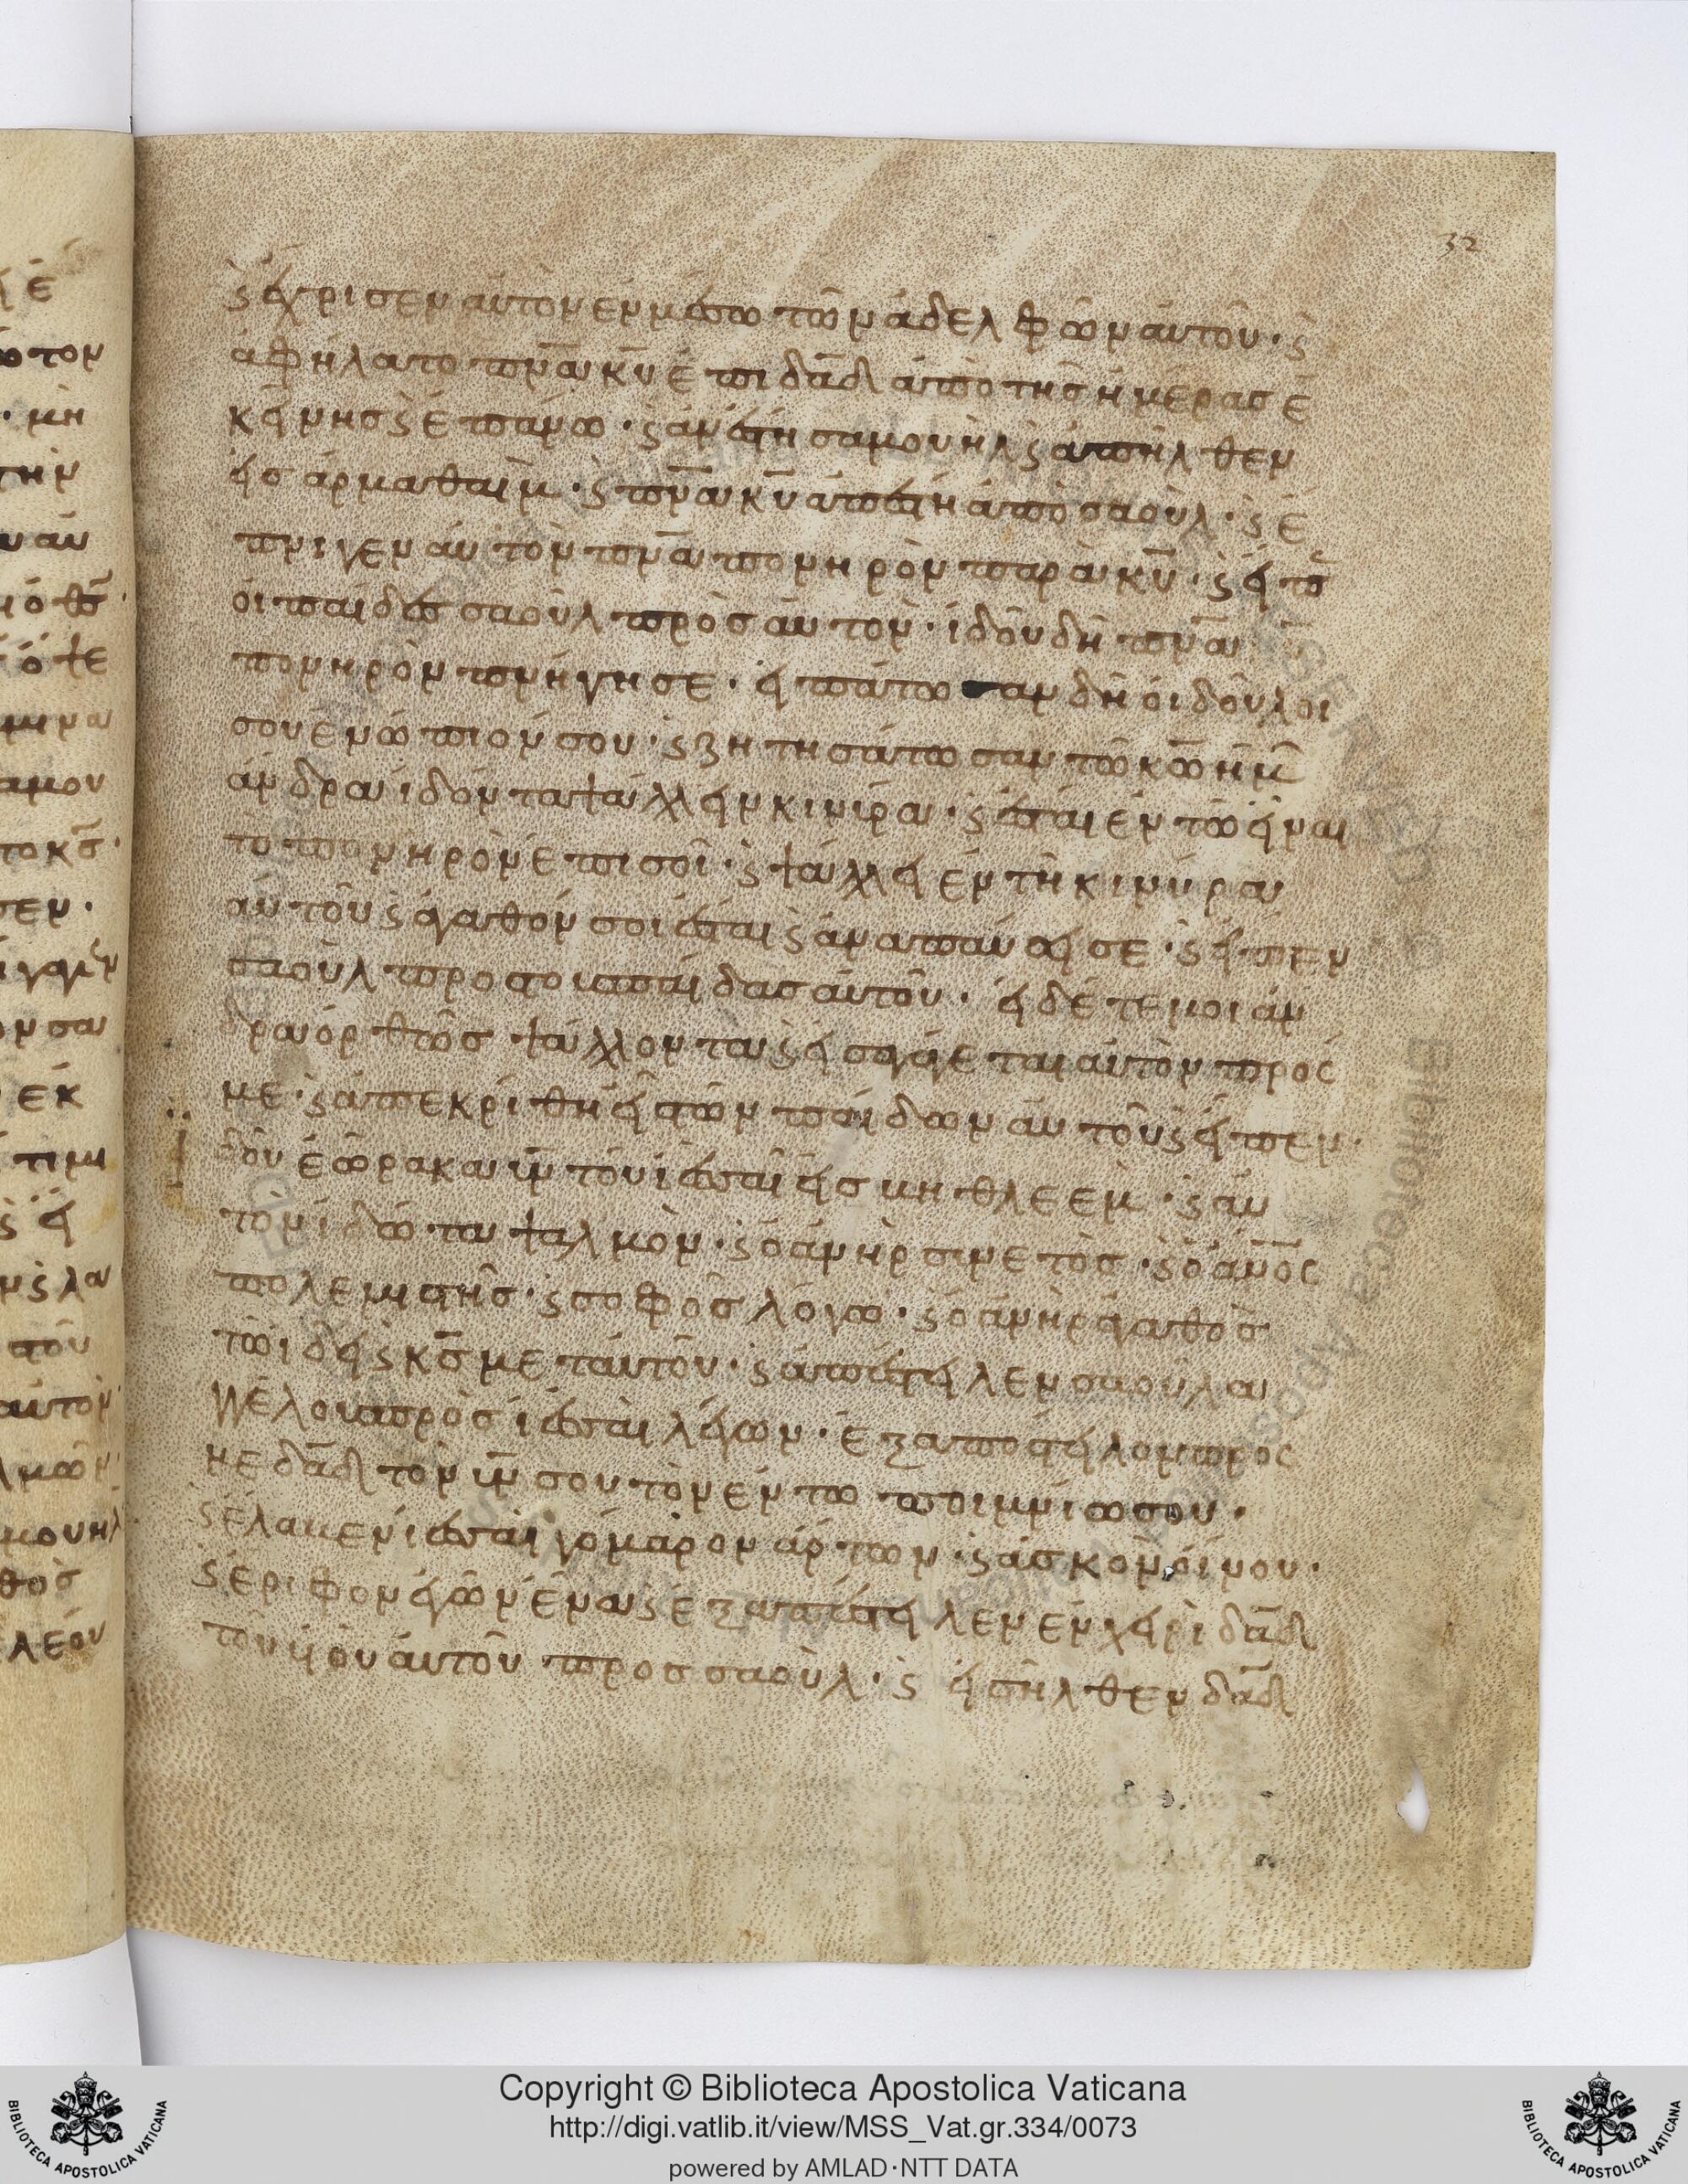 32
ϛ ἔχρισεν αὐτὸν ἐν μέσω τῶν ἀδελφῶν αὐτοῦ · ϛ
ἀφήλατο πν̅α κ̅υ ἐπι δα̅δ ἀπὸ τῆσ ἡμέρασ ἐ
κείνησ ϛ ἐπάνω · ϛ ἀνέστη σαμουὴλ ϛ ἀπῆλθεν
εἰσ ἀρμαθαὶμ · ϛ πν̅α κ̅υ ἀπέστη ἀπὸ σαοὺλ · ϛ ἔ
πνιγεν αὐτὸν πν̅α πονηρὸν παρὰ κ̅υ · ϛ εἶπο̅
οἱ παίδεσ σαοὺλ πρὸσ αὐτὸν · ἰδοὺ δὴ πν̅α
πονηρὸν πνήγη σε · εἰπάτωσαν δὴ οἱ δοῦλοι
σου ἐνώπιόν σου · ϛ ζητησάτωσαν τῶ κ̅ω ἡμ
ἄνδρα ἰδόντα ψάλλειν κινίρα · ϛ ἔσται ἐν τῶ εἶναι
τὸ πονηρὸν ἐπι σοὶ · ϛ ψάλλει ἐν τῆ κινύρα
αὐτοῦ ϛ ἀγαθόν σοι ἔσται ϛ ἀναπαύσει σε · ϛ εἶπεν
σαοὺλ προσ τουσ παίδασ αὐτοῦ · εἴδετε μοι ἄν
δρα ὀρθῶσ ψάλλοντα ϛ εἰσαγάγεται αὐτὸν πρόσ
με · ϛ ἀπεκρίθη εἷσ τῶν παίδων αὐτοῦ ϛ εἶπεν ·
ἰδοὺ ἑώρακα υ̅ν τόυ ἰεσσαὶ εἰσ βηθλεὲμ · ϛ αὐ
τὸν ἰδώτα ψαλμὸν · ϛ ὁ ἀνὴρ σινετὸσ · ϛ ὁ α̅ν̅ο̅ς
πολεμιστὴσ · ϛ σοφὸσ λόγω · ϛ ὁ ἀνὴρ ἀγαθὸσ
τῶ ἴδει ϛ κ̅σ μετ αὐτοῦ · ϛ ἀπέστειλεν σαοὺλ α
γγέλουσ πρὸσ ἰεσσαὶ λέγων · ἐξαποστειλον πρός
με δα̅δ τὸν υ̅ν σου τὸν ἐν τῶ ποιμνίω σου ·
ϛ ἔλαβεν ἰεσσαὶ γόμαρον ἄρτων · ϛ ἀσκὸν οἴνου ·
ϛ ἔριφον ἐγῶν ἕνα ϛ ἐξαπέστειλεν ἐν χειρὶ δα̅δ
τοῦ ὑιοῦ αὐτοῦ προσ σαοὺλ · ϛ εἰσῆλθεν δα̅δ
BIBLIOTECA APOSTOLICA VATICANA
Copyright © Biblioteca Apostolica Vaticana
http://digi.vatlib.it/view/MSS_Vat.gr.334/0073
powered by AMLAD·NTT DATA
BIBLIOTECA APOSTOLICA VATICANA